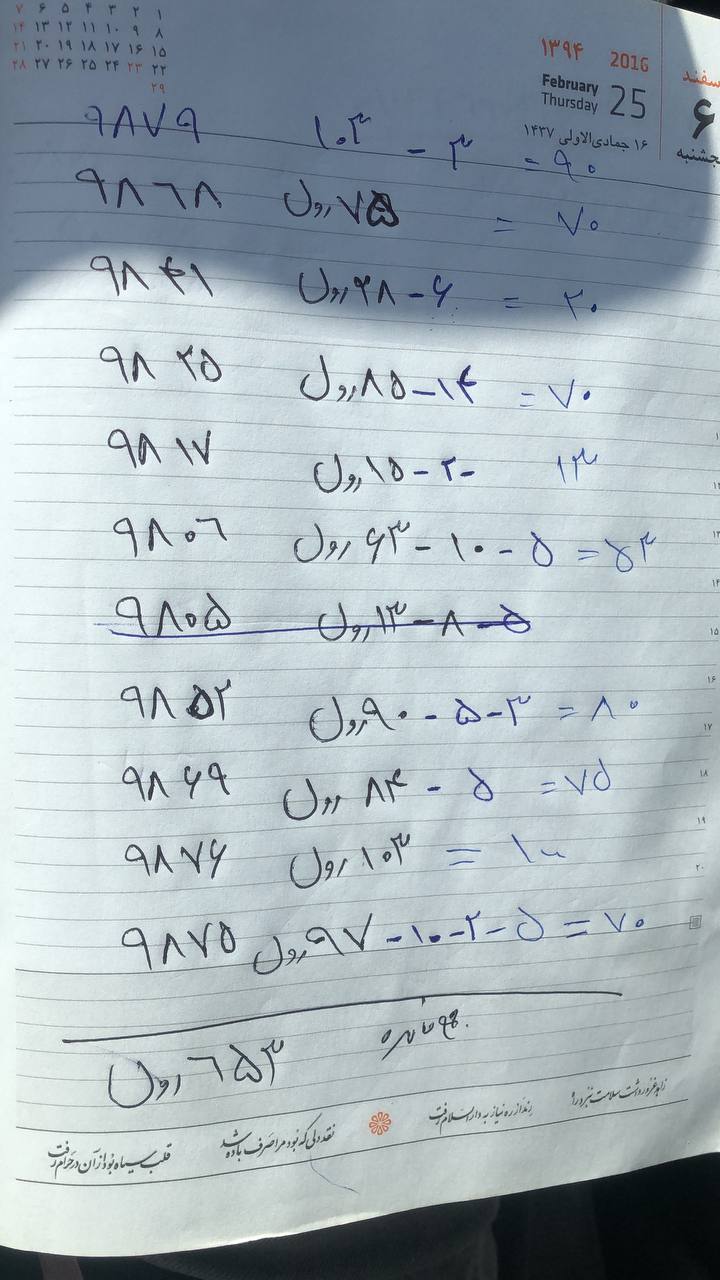 ۷ ۶ ۵ ۴ ۳ ۲ ۱
۱۴ ۱۳ ۱۲ ۱۱ ۱۰ ۹ ۸
۲۱ ۲۰ ۱۹ ۱۸ ۱۷ ۱۶ ۱۵
۲۸ ۲۷ ۲۶ ۲۵ ۲۴ ۲۳ ۲۲
۲۹
۱۳۹۴ 2016
سفند
February
Thursday 25
۶
۱۶ جمادی‌الاولی ۱۴۳۷
جشنبه
۹۸۷۹ ۱۰۳ - ۳ = ۹۰
۹۸۶۸ ۷۵ رول = ۷۰
۹۸۴۱ ۲۸ - ۶ رول = ۲۰
۹۸۲۵ ۸۵ - ۱۴ رول = ۷۰
۹۸۱۷ ۱۵ - ۲ - رول ۱۳
۹۸۰۶ ۶۳ - ۱۰ - ۵ رول = ۵۴
۹۸۰۵ ۱۳ - ۸ - ۵ رول
۹۸۵۲ ۹۰ - ۵ - ۳ رول = ۸۰
۹۸۶۹ ۸۴ - ۵ رول = ۷۵
۹۸۷۶ ۱۰۳ رول = ۱۰۰
۹۸۷۵ ۹۷ - ۱۰ - ۲ - ۵ رول = ۷۰
۶۵۳ رول
زاهد غرور داشت سلامت نبرد راه
رند از ره نیاز به دارالسلام رفت
نقد دلی که بود مرا صرف باده شد
قلب سیاه بود از آن در حرام رفت